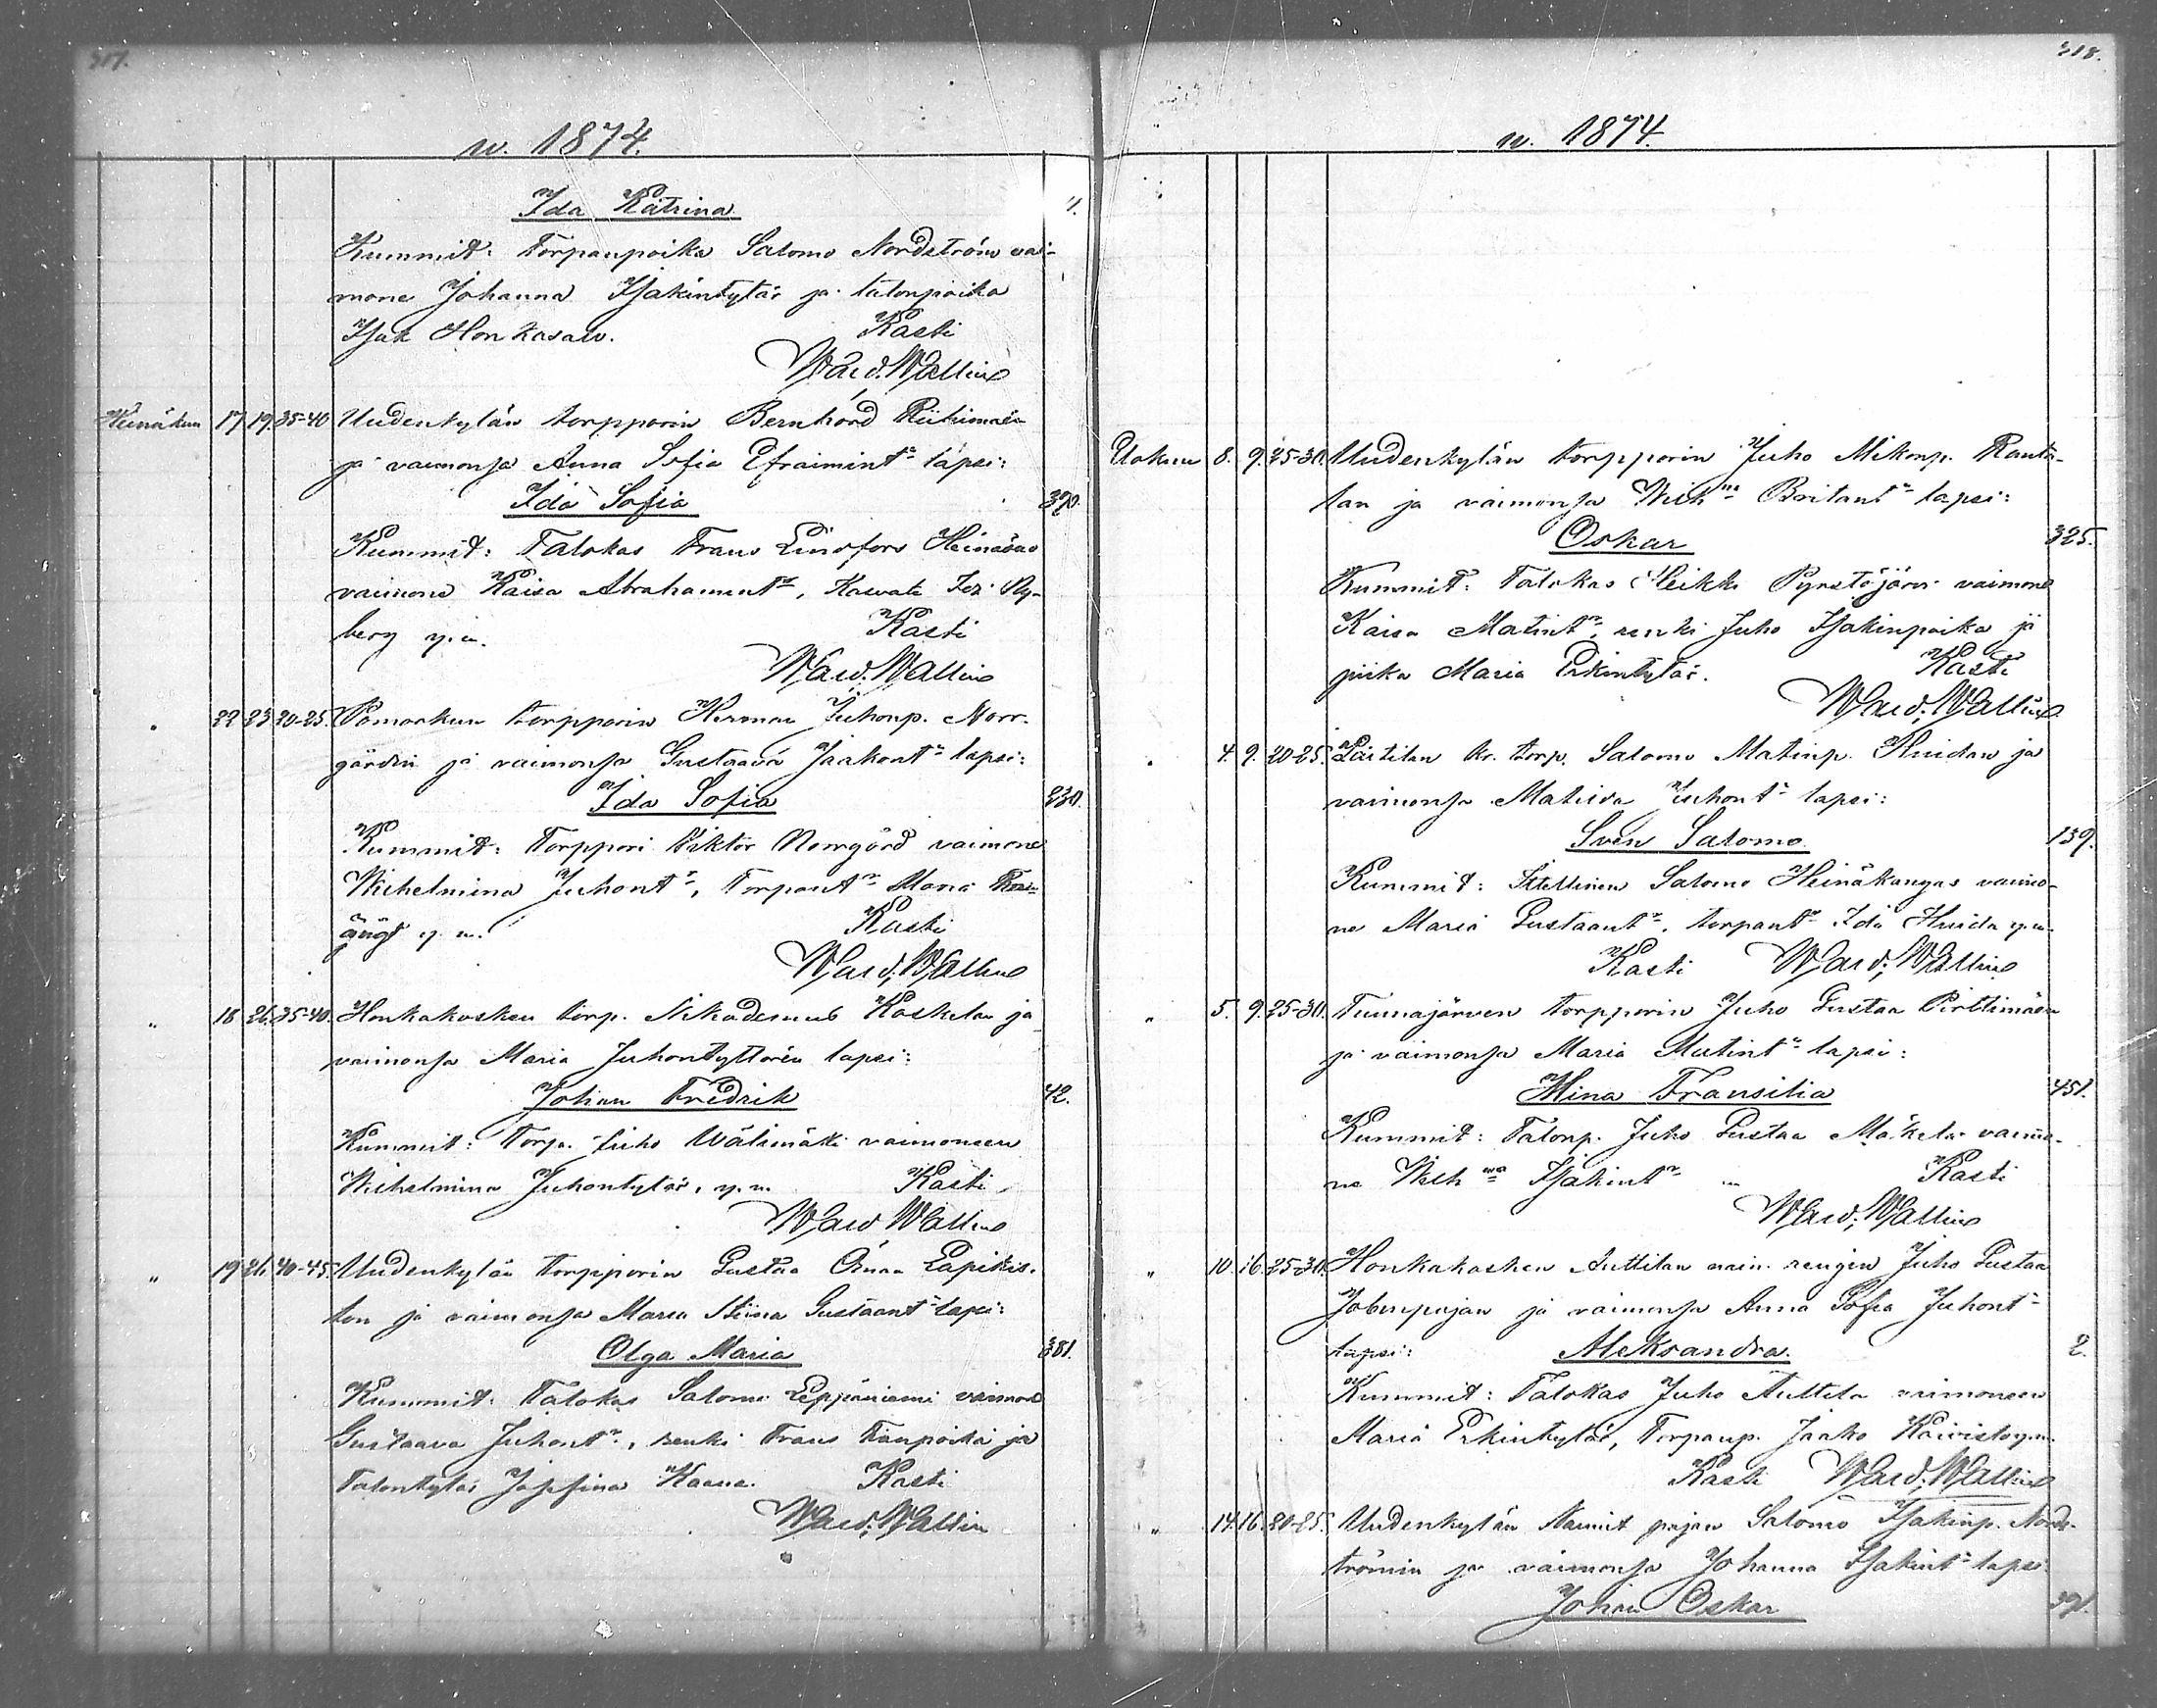 317.
w. 1874.
Ida Katrina 4.
Kummit: Torpanpoika Salomo Nordström vai-
mone Johanna Isakintytär ja talonpoika
Isak Honkasalo. Kasti
Ward. Wallin
Heinäkuu 17 19. 35-40 Uudenkylän torpparin Bernhard Riihimäen
ja vaimonsa Anna Sofia Efraimint:n lapsi:
Ida Sofia 390.
Kummit: Talokas Frans Lindfors Heinäoas
vaimone Kaisa Abrahamint:r, Kasvatti Ida Ny-
berg y.m. Kasti
Ward. Wallin
" 22 23 20-25. Pomarkun torpparin Herman Juhonp. Norr-
gårdin ja vaimonsa Gustaava Jaakont:n lapsi:
Ida Sofia 230.
Kummit: Torppari Viktor Norrgård vaimone
Wilhelmina Juhont:r, Torpant:r Maria
y. m. Kasti
Ward. Wallin
" 18 26. 35-40. Honkakosken torp. Nikodemus Koskelan ja
vaimonsa Maria Juhontyttären lapsi:
Johan Fredrik 42.
Kummit: Torp. Juho Wälimäki vaimoneen
Wilhelmina Juhontytär, y.m. Kasti
Ward Wallin
" 19 26. 40-45. Uudenkylän torpparin Gustaa Oman Lapikis-
ton ja vaimonsa Maria Stiina Gustaant:n lapsi:
Olga Maria 381.
Kummit: Talokas Salomo Leppäniemi vaimone
Gustaava Juhont:r, renki Frans Franpoika ja
Talontytär Josefina Kaasa. Kasti
Ward. Wallin
318.
w. 1874.
Elokuu 8. 9. 25-30. Uudenkylän torpparin Juho Mikonp. Ranta-
lan ja vaimonsa Wilh:na Britant:n lapsi:
Oskar 325.
Kummit: Talokas Heikki Pyrstöjärvi vaimone
Kaisa Matint:r, renki Juho Isakinpoika ja
piika Maria Erkintytär. Kasti
Ward. Wallin
" 4. 9. 20-25. Lassilan kr. torp. Salomo Matinp. Huidan ja
vaimonsa Matilda Juhont:n lapsi:
Sven Salomo 139.
Kummit: Itellinen Salomo Heinäkangas vaimo-
ne Maria Gustaant:r, torpant:r Ida Huida y.m.
Kasti Ward. Wallin
" 5. 9. 25-30. Tuunajärven torpparin Juho Gustaa Pirttimäen
ja vaimonsa Maria Matint:n lapsi:
Miina Fransilia 451.
Kummit: Talonp. Juho Gustaa Mäkelä vaimo-
ne Wilh:na Isakint:r Kasti
Ward. Wallin
" 10. 16. 25-30. Honkakosken Anttilan nain. rengin Juho Gustaa
Jobinpojan ja vaimonsa Anna Sofia Juhont:n
lapsi: Aleksandra 2.
Kummit: Talokas Juho Anttila vaimoneen
Maria Erkintytär, Torpanp. Jaako Koivisto y.m.
Kasti Ward. Wallin
" 14. 16. 20-25. Uudenkylän Naimit pojan Salomo Isakinp. Nord-
strömin ja vaimonsa Johanna Isakint:n lapsi
Johan Oskar